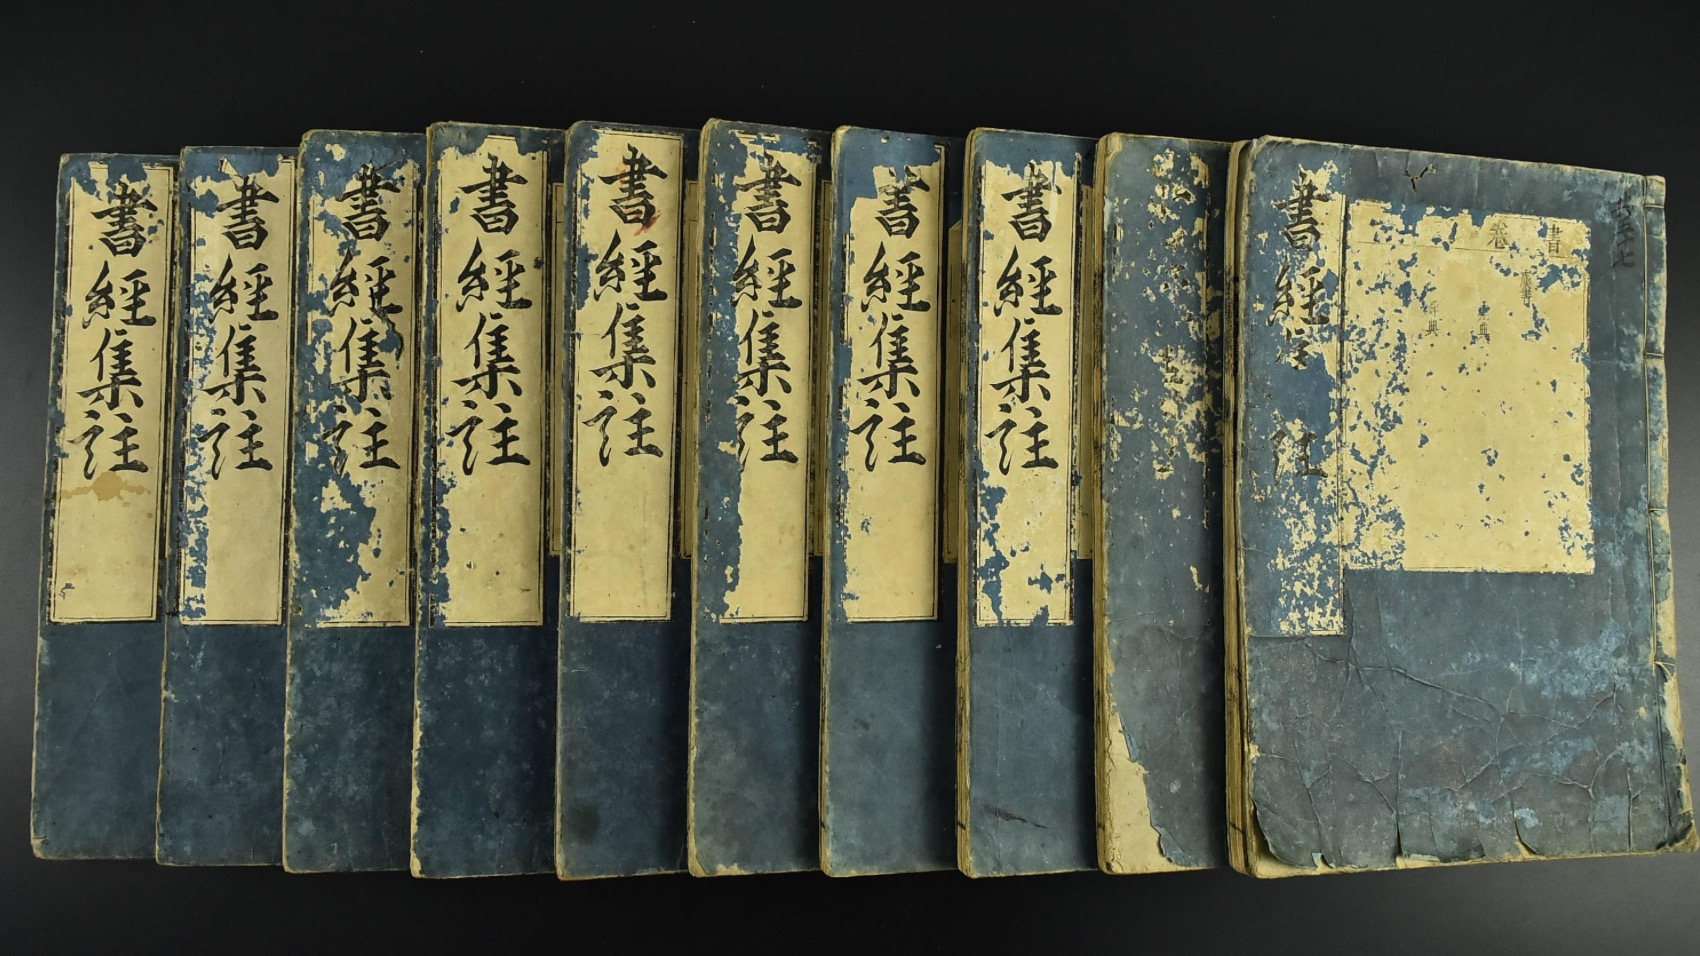 書經集註
書經集註
書經集註
書經集註
書經集註
書經集註
書經集註
書經集註
書經 註
書
卷
虞書
堯典
舜典